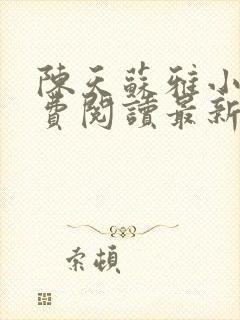 陳天蘇雅小
費閱讀最新
索頓